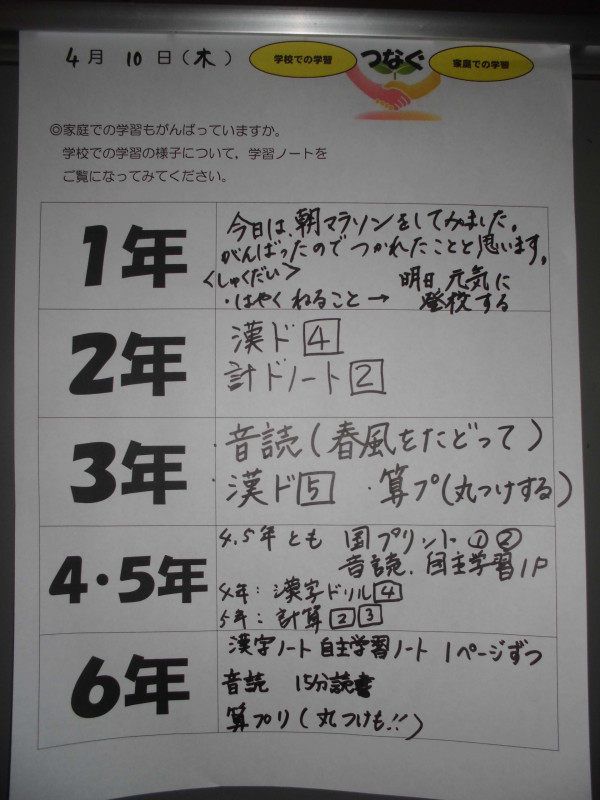 4月 10日(木)
学校での学習 つなぐ 家庭での学習
◎家庭での学習もがんばっていますか。
学校での学習の様子について、学習ノートを
ご覧になってみてください。
1年
今日は、朝マラソンをしてみました。
がんばったのでつかれたことと思います。
<しゅくだい>
・はやくねること→ 明日、元気に
登校する
2年
漢ド4
計ドノート2
3年
・音読(春風をたどって)
・漢ド5 ・算プ(丸つけする)
4・5年
4.5年とも 国プリント①②
音読、自主学習1P
4年:漢字ドリル4
5年:計算23
6年
漢字ノート 自主学習ノート 1ページずつ
音読 15分読書
算プリ(丸つけも!!)